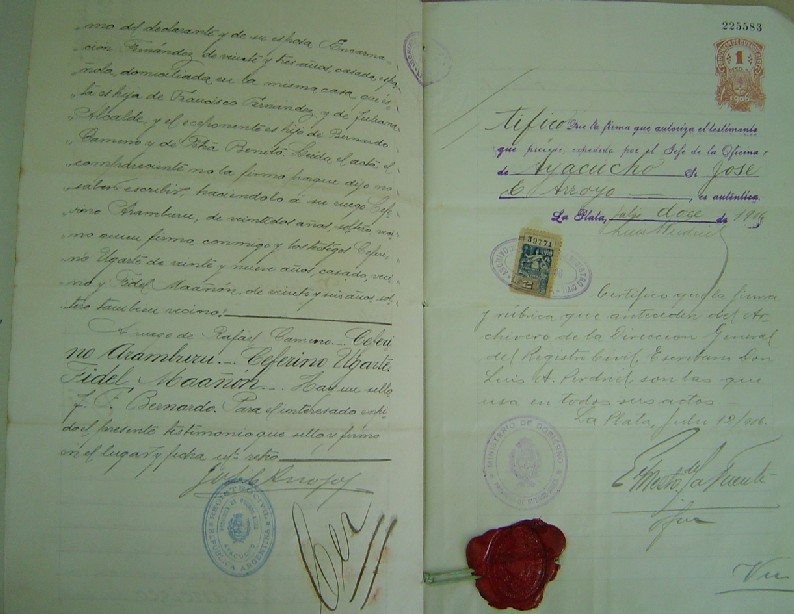 mo del declarante y de su esposa Encarna-
cion Fernández de veinte y tres años, casada, espa-
ñola, domiciliada en la misma casa, que
es hija de Francisco Fernandez y de Juliana
Alcalde, y el exponente es hijo de Bernardo
Camino y de Benita. Leida el acta el
compareciente no la firma porque dijo no
saber escribir, haciendolo á su ruego Cefe-
rino Aramburu, de veintidos años, soltero, veci-
no quien firma conmigo y los testigos Ceferi-
no Ugarte de veinte y nueve años, casado, veci-
no y Fidel Maañón de veinte y seis años, sol-
tero tambien vecino:
A ruego de Rafael Camino Ceferi
no Aramburu Ceferino Ugarte
Fidel Maañón Hay un sello
J. F. Bernardo. Para el interesado expi-
do el presente testimonio que sello y firmo
en el lugar y fecha
REPUBLICA ARGENTINA
225583
1
tifico Que la firma que autoriza el testimonio
que precede, expedido por el Jefe de la Oficina,
de Ayacucho Sr. José
E. Arroyo, es autentica.
La Plata, Julio doce de 1916
39271
Certifico que la firma
y rúbrica que anteceden del Ar-
chivero de la Direccion General
del Registro Civil, Escribano Don
Luis A. son las que
usa en todos sus actos
La Plata, Julio 12/916.
MINISTERIO DE GOBIERNO
Ernesto de la Fuente
Jefe